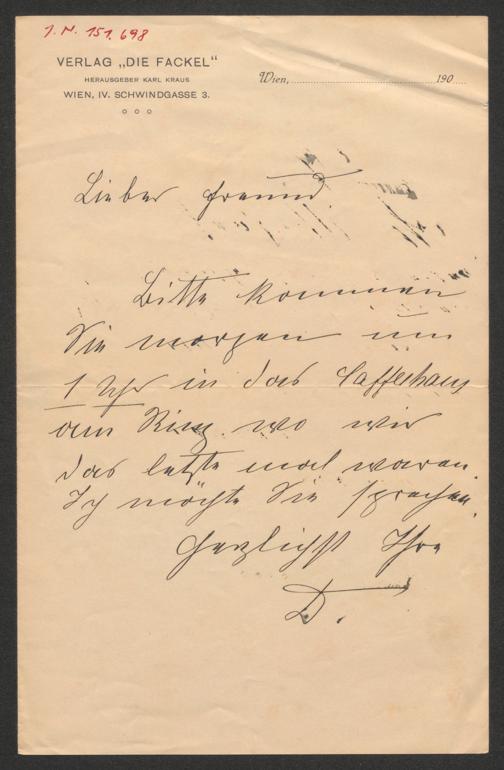 J. N. 151.698
VERLAG „DIE FACKEL“
HERAUSGEBER KARL KRAUS
WIEN, IV. SCHWINDGASSE 3.
Wien, 190
Lieber Freund
Bitte kommen
Sie morgen um
1 Uhr in das Caffeehaus
am Ring wo wir
das letzte mal waren.
Ich möchte Sie sprechen.
Herzlichst Ihr
D.